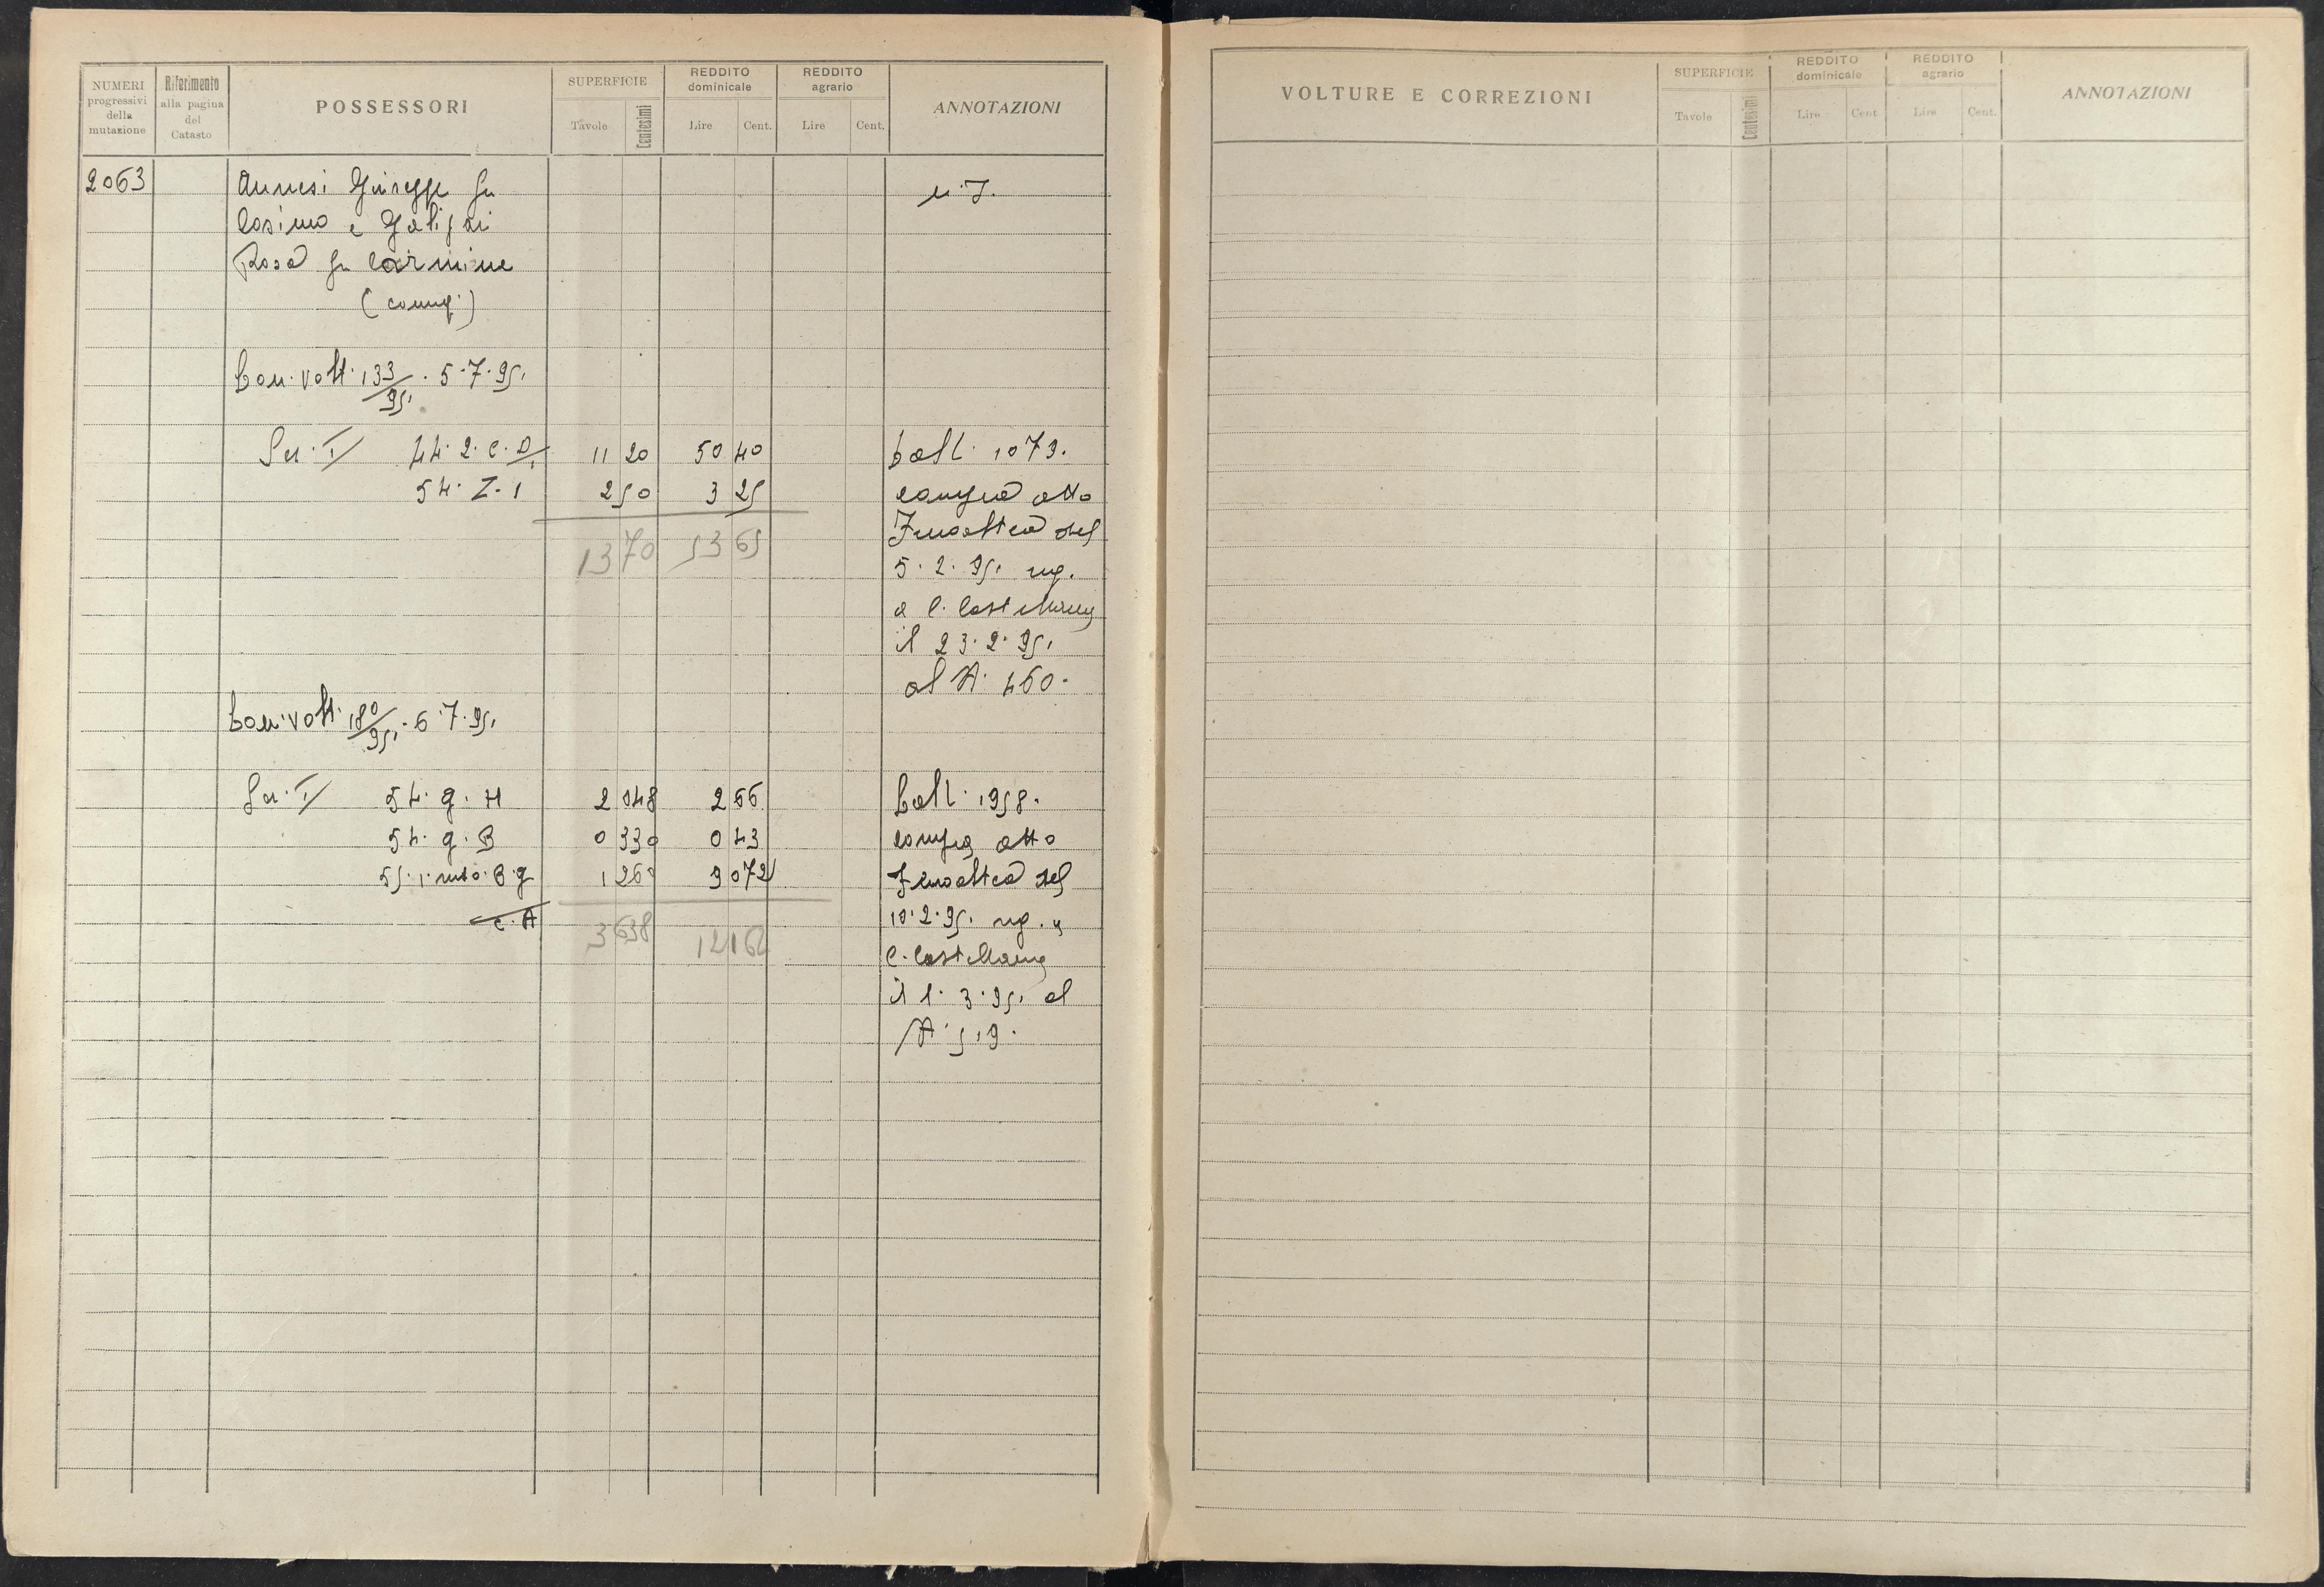 NUMERI progressivi della mutazione | Riferimento alla pagina del Catasto | POSSESSORI | SUPERFICIE Tavole Centesimi | REDDITO dominicale Lire Cent. | REDDITO agrario Lire Cent. | ANNOTAZIONI
2063 Annesi Giuseppe fu
Cosimo e
Rosa fu Carmine
(coniugi)
Con. volt. 133/951. 5.7.951
Sez. I 44.2.C.D/1 11 20 50 40
54.Z.1 2 50 3 25
13 70 53 65
Con. volt. 180/951. 6.7.951
Sez. I 54.g.H 2 048 2 66
54.g.B 0 330 0 43
55.1. B.g 1 260 9 072
C.A
3 638 12 162
n. 7.
Coll. 1073.
compra atto
del
5.2.951 reg.
a C. Castellana
il 23.2.951
al N. 460.
Coll. 1958.
compra atto
del
10.2.951 reg. a
C. Castellana
il 1.3.951 al
N. 519.
VOLTURE E CORREZIONI | SUPERFICIE Tavole Centesimi | REDDITO dominicale Lire Cent | REDDITO agrario Lire Cent. | ANNOTAZIONI